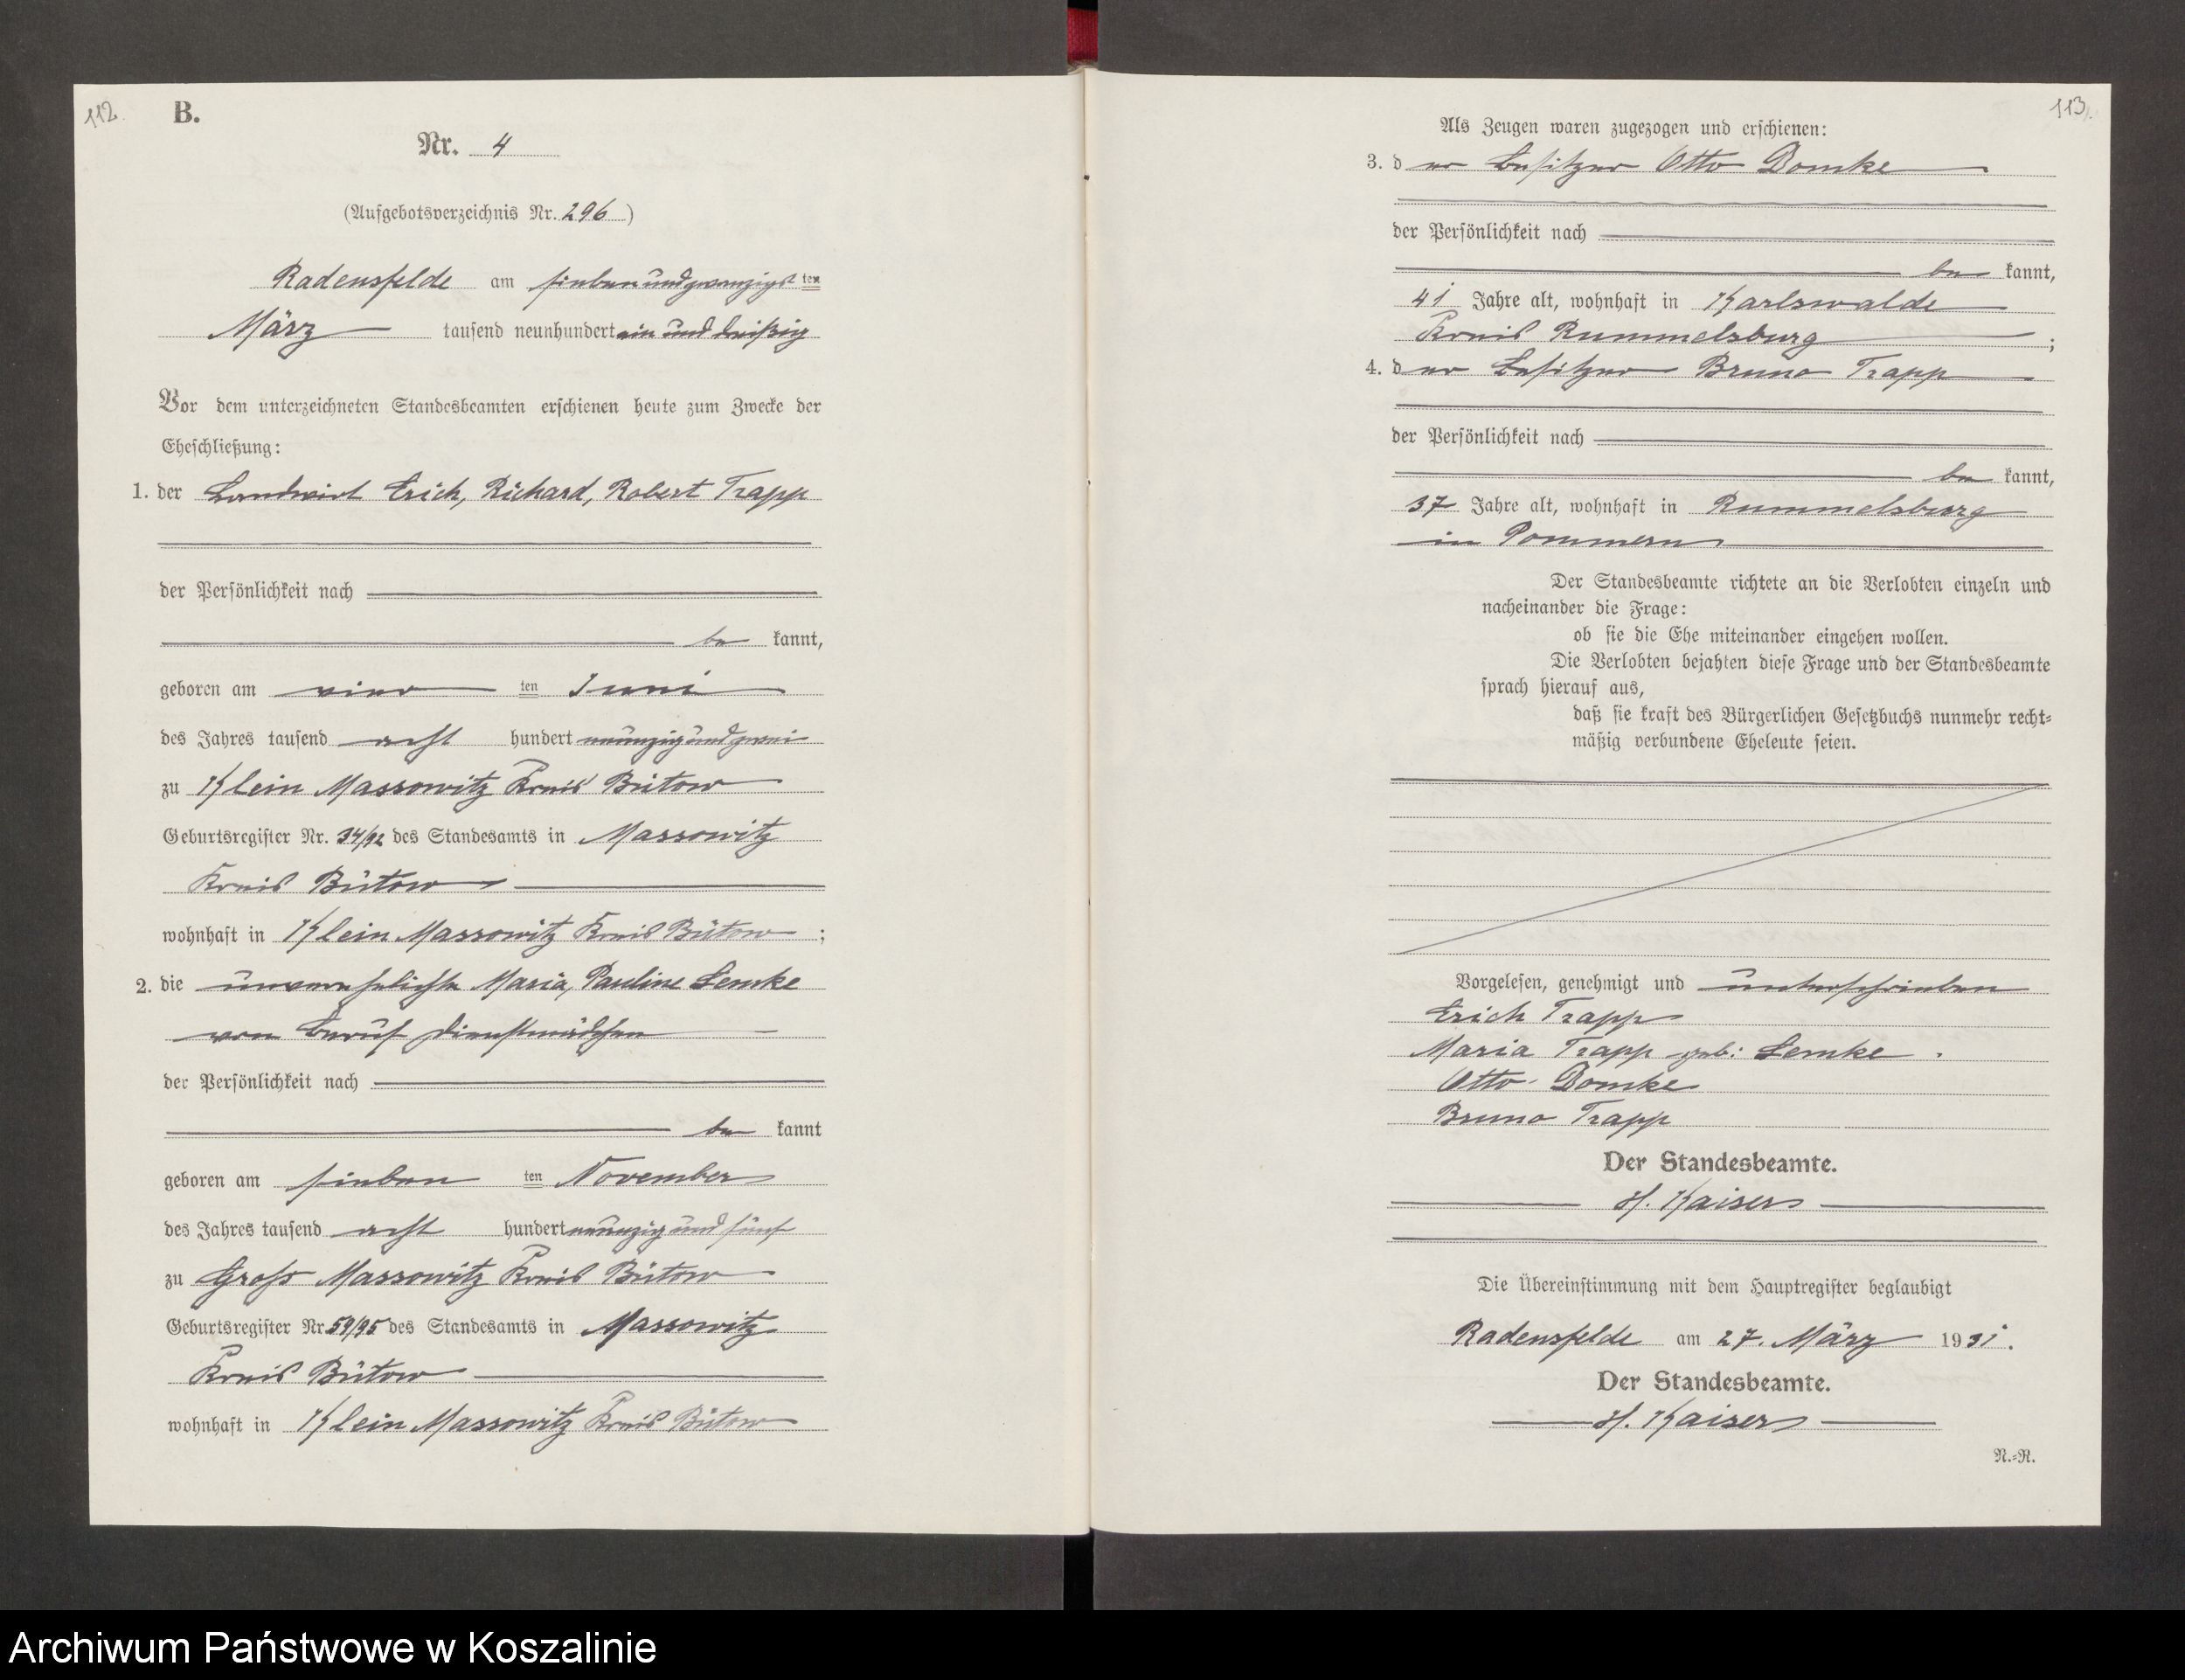 112.
B.
Nr. 4
(Aufgebotsverzeichnis Nr. 296)
Radensfelde am siebenundzwanzigst ten
März tausend neunhundert ein und dreißig
Vor dem unterzeichneten Standesbeamten erschienen heute zum Zwecke der
Eheschließung:
1. der Landwirt Erich, Richard, Robert Trapp
der Persönlichkeit nach
be kannt,
geboren am vier ten Juni
des Jahres tausend acht hundert neunzig und zwei
zu Klein Massowitz Kreis Bütow
Geburtsregister Nr. 34/92 des Standesamts in Massowitz
Kreis Bütow
wohnhaft in Klein Massowitz Kreis Bütow ;
2. die unverehelichte Maria, Pauline Lemke
von Beruf Dienstmädchen
der Persönlichkeit nach
be kannt
geboren am sieben ten November
des Jahres tausend acht hundert neunzig und fünf
zu Gross Massowitz Kreis Bütow
Geburtsregister Nr. 59/95 des Standesamts in Massowitz
Kreis Bütow
wohnhaft in Klein Massowitz Kreis Bütow
113.
Als Zeugen waren zugezogen und erschienen:
3. d er Besitzer Otto Domke
der Persönlichkeit nach
be kannt,
41 Jahre alt, wohnhaft in Karlswalde
Kreis Rummelsburg ;
4. d er Besitzer Bruno Trapp
der Persönlichkeit nach
be kannt,
37 Jahre alt, wohnhaft in Rummelsburg
in Pommern
Der Standesbeamte richtete an die Verlobten einzeln und
nacheinander die Frage:
ob sie die Ehe miteinander eingehen wollen.
Die Verlobten bejahten diese Frage und der Standesbeamte
sprach hierauf aus,
daß sie kraft des Bürgerlichen Gesetzbuchs nunmehr recht-
mäßig verbundene Eheleute seien.
Vorgelesen, genehmigt und unterschrieben
Erich Trapp
Maria Trapp geb: Lemke.
Otto Domke
Bruno Trapp
Der Standesbeamte.
H. Kaiser
Die Übereinstimmung mit dem Hauptregister beglaubigt
Radensfelde am 27. März 1931.
Der Standesbeamte.
H. Kaiser
N.-R.
Archiwum Państwowe w Koszalinie